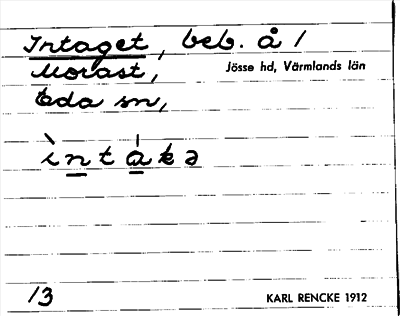 Intaget, beb. å 1
Morast,
Jösse hd, Värmlands län
Eda sn,
ìntákə
13
KARL RENCKE 1912